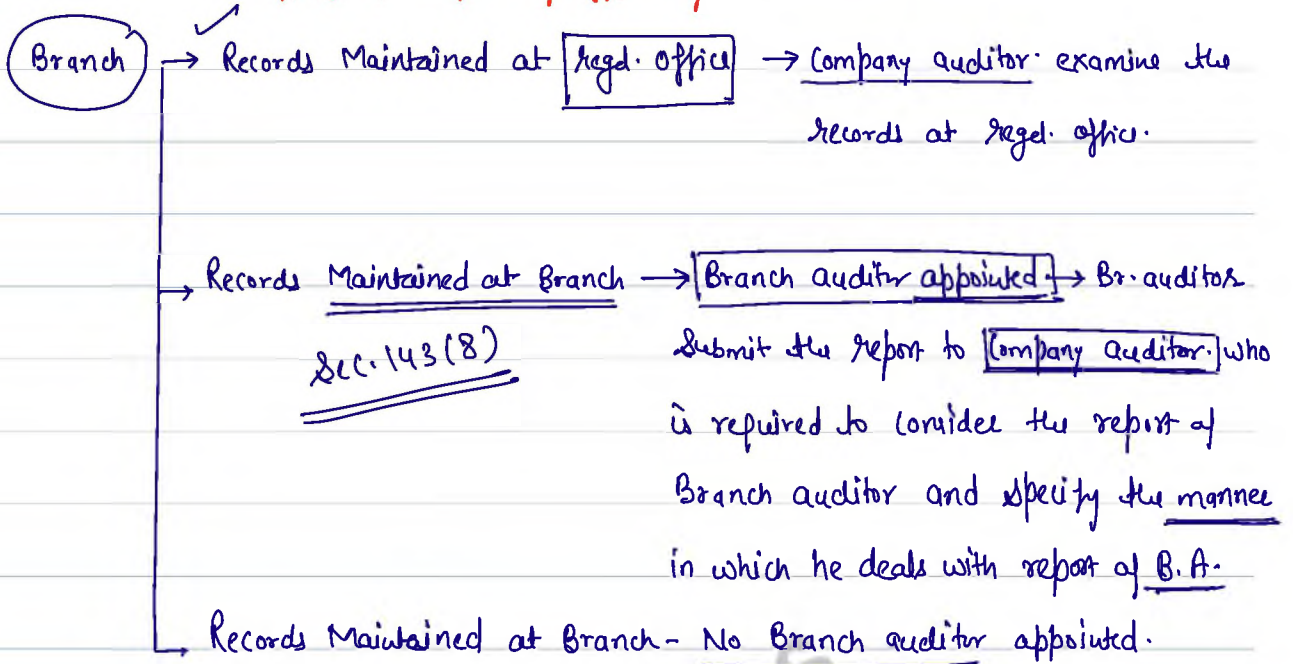 Branch → Records Maintained at regd. office → Company auditor examine the
records at regd. office.
→ Records Maintained at Branch → Branch auditor appointed → Br. auditor
Sec. 143(8)
Submit the report to Company Auditor. who
is required to consider the report of
Branch auditor and specify the manner
in which he deals with report of B.A.
→ Records Maintained at Branch - No Branch auditor appointed.